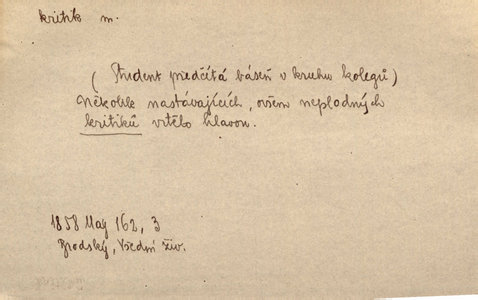 kritik m.
(Student předčítá báseň v kruhu kolegů)
Několik nastávajících, ovšem neplodných
kritiků vrtělo hlavou.
1858 Máj 162, 3
Brodský, Všední živ.